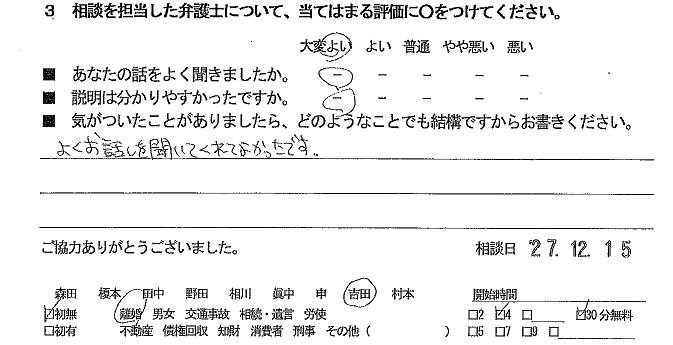 3 相談を担当した弁護士について、当てはまる評価に〇をつけてください。
大変よい よい 普通 やや悪い 悪い
■ あなたの話をよく聞きましたか。 － － － － －
■ 説明は分かりやすかったですか。 － － － － －
■ 気がついたことがありましたら、どのようなことでも結構ですからお書きください。
よくお話しを聞いてくれてよかったです。
ご協力ありがとうございました。 相談日 27.12.15
森田 榎本 田中 野田 相川 眞中 申 吉田 村本 開始時間
☑初無 離婚 男女 交通事故 相続・遺言 労使 □2 ☑4 □ ☑30分無料
□初有 不動産 債権回収 知財 消費者 刑事 その他 ( ) □5 □7 □9 □